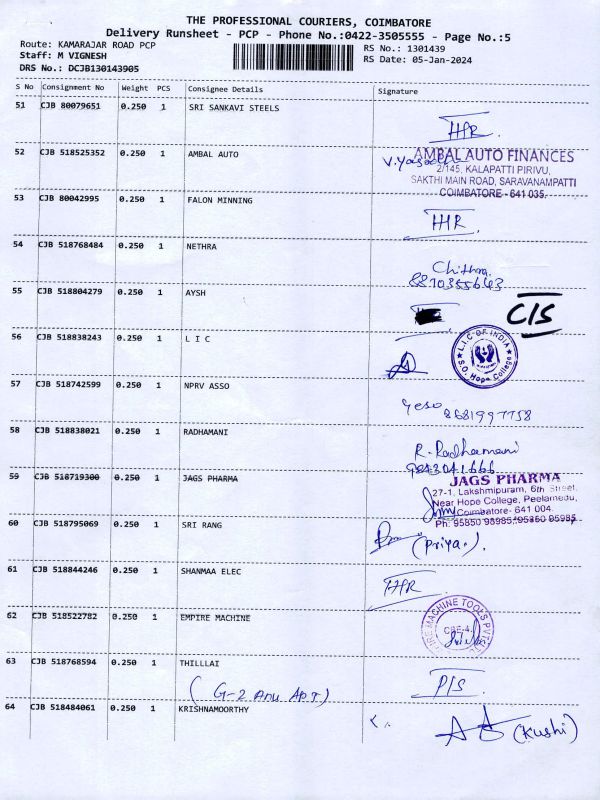 THE PROFESSIONAL COURIERS, COIMBATORE
Delivery Runsheet - PCP - Phone No.:0422-3505555 - Page No.:5
Route: KAMARAJAR ROAD PCP
RS No.: 1301439
Staff: M VIGNESH
RS Date: 05-Jan-2024
DRS No.: DCJB130143905
S No Consignment No Weight PCS Consignee Details Signature
51 CJB 80079651 0.250 1 SRI SANKAVI STEELS
52 CJB 518525352 0.250 1 AMBAL AUTO
AMBAL AUTO FINANCES
2/145, KALAPATTI PIRIVU,
SAKTHI MAIN ROAD, SARAVANAMPATTI
COIMBATORE - 641 035.
53 CJB 80042995 0.250 1 FALON MINNING
54 CJB 518768484 0.250 1 NETHRA
Chithra
8870355643
55 CJB 518804279 0.250 1 AYSH
C/S
56 CJB 518838243 0.250 1 L I C
L.I.C OF INDIA
S.O. Hope College
57 CJB 518742599 0.250 1 NPRV ASSO
8681997758
58 CJB 518838021 0.250 1 RADHAMANI
R. Radhamani
9843041666
59 CJB 518719300 0.250 1 JAGS PHARMA
JAGS PHARMA
27-1, Lakshmipuram, 6th Street,
Near Hope College, Peelamedu,
Coimbatore- 641 004.
Ph: 95850 98985,
60 CJB 518795069 0.250 1 SRI RANG
(Priya.).
61 CJB 518844246 0.250 1 SHANMAA ELEC
62 CJB 518522782 0.250 1 EMPIRE MACHINE
MACHINE TOOLS PVT
CBE-4.
63 CJB 518768594 0.250 1 THILLLAI
P/S
64 CJB 518484061 0.250 1 KRISHNAMOORTHY
(Kushi)